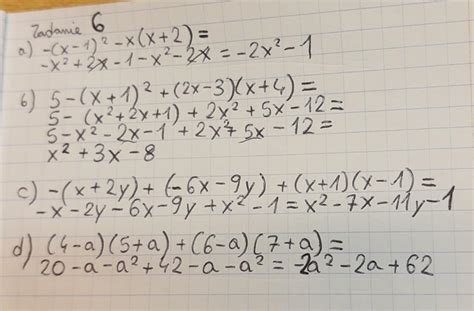 Zadanie 6
a) -(x-1)² -x(x+2)=
-x²+2x-1-x²-2x=-2x²-1
b) 5-(x+1)²+(2x-3)(x+4)=
5-(x²+2x+1)+2x²+5x-12=
5-x²-2x-1+2x²+5x-12=
x²+3x-8
c) -(x+2y)+(-6x-9y)+(x+1)(x-1)=
-x-2y-6x-9y+x²-1=x²-7x-11y-1
d) (4-a)(5+a)+(6-a)(7+a)=
20-a-a²+42-a-a²=-2a²-2a+62